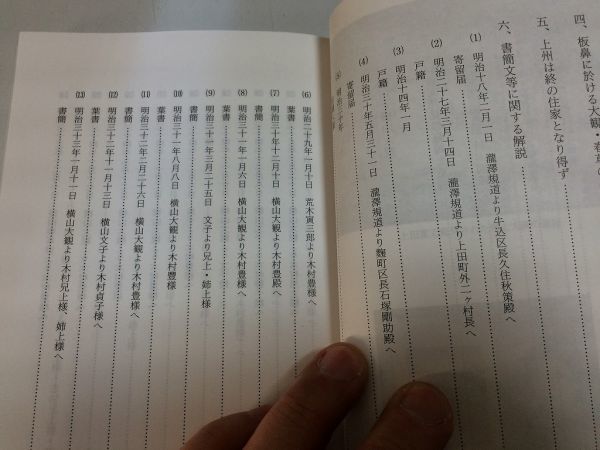 四、板鼻に於ける大観・春草の
五、上州は終の住家となり得ず
六、書簡文等に関する解説
(1) 明治十八年二月一日 瀧澤規道より牛込区長久住秋策殿へ
寄留届
(2) 明治二十七年三月十四日 瀧澤規道より上田町外二ヶ村長へ
戸籍
(3) 明治十四年一月
戸籍
(4) 明治三十年五月三十一日 瀧澤規道より麹町区長石塚剛助殿へ
寄留届
(5) 明治三十年
(6) 明治二十九年一月十日 荒木寅三郎より木村豊様へ
葉書
(7) 明治三十年十二月十日 横山大観より木村豊殿へ
書簡
(8) 明治三十一年一月六日 横山大観より木村豊様へ
葉書
(9) 明治三十一年三月二十五日 文子より兄上・姉上様
書簡
(10) 明治三十一年八月八日 横山大観より木村豊様
葉書
(11) 明治三十二年二月二十六日 横山大観より木村豊様へ
書簡
(12) 明治三十二年十一月十三日 横山文子より木村貞子様へ
葉書
(13) 明治三十三年一月十一日 横山大観より木村兄上様、姉上様へ
書簡